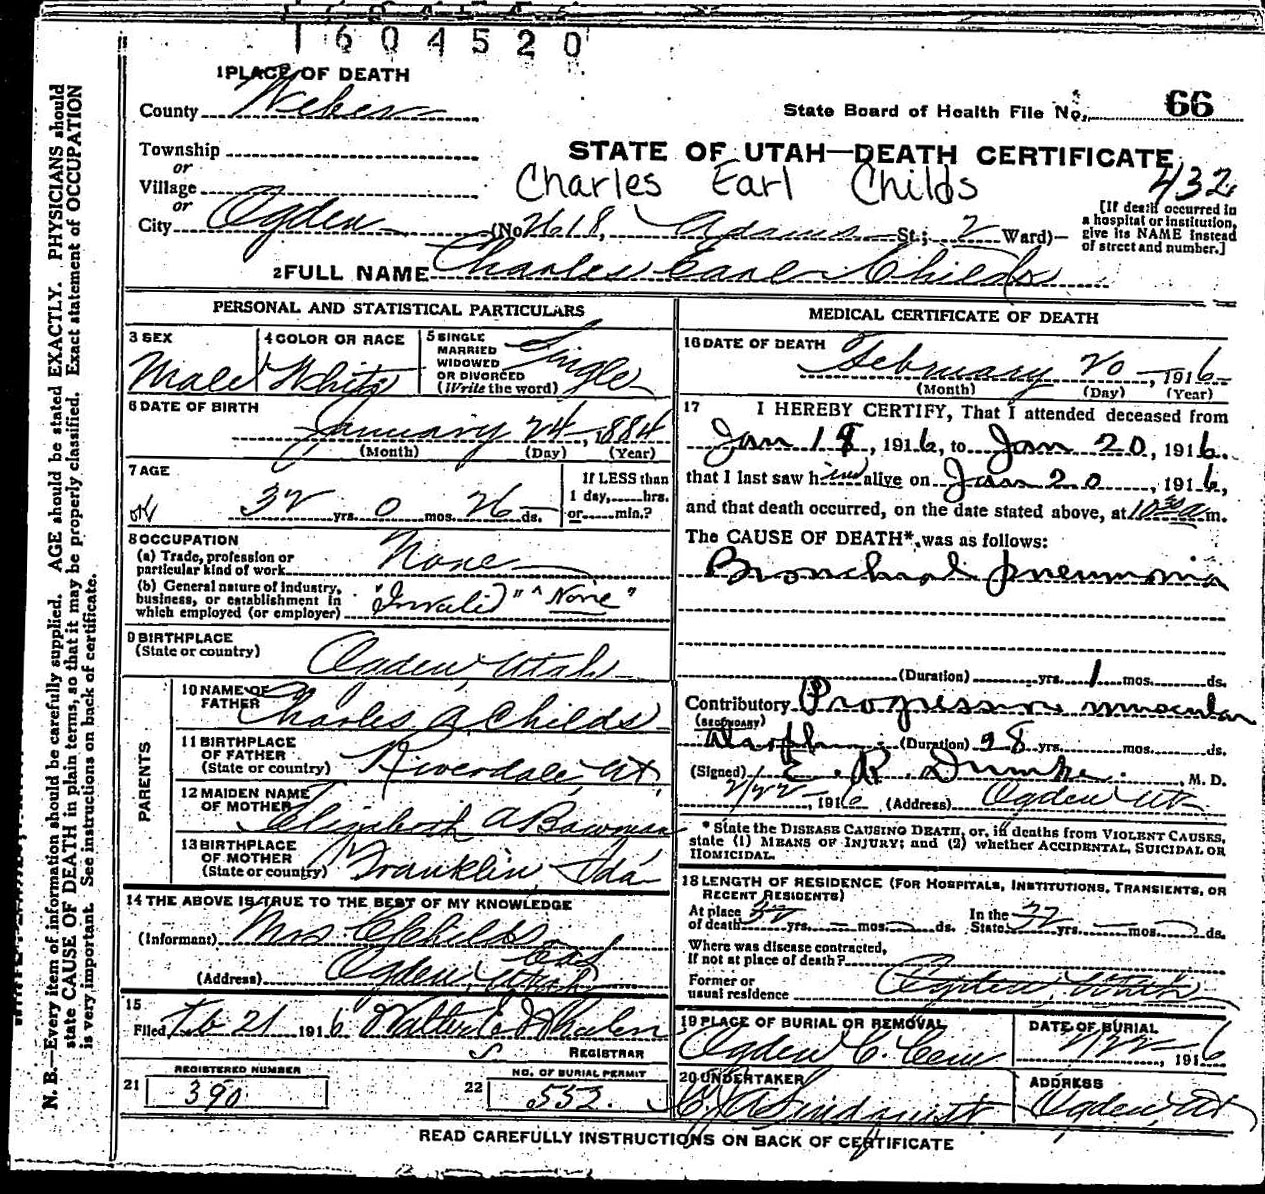 1604520
1 PLACE OF DEATH
County Weber
State Board of Health File No. 66
Township
or
Village
or
City Ogden (No 2618, Adams St.; 2 Ward)
STATE OF UTAH—DEATH CERTIFICATE
432
Charles Earl Childs
[If death occurred in
a hospital or institution,
give its NAME instead
of street and number.]
2 FULL NAME Charles Earl Childs
PERSONAL AND STATISTICAL PARTICULARS
3 SEX
Male
4 COLOR OR RACE
White
5 SINGLE
MARRIED
WIDOWED
OR DIVORCED
(Write the word)
Single
6 DATE OF BIRTH
January 24, 1884
(Month) (Day) (Year)
7 AGE
32 yrs. 0 mos. 26 ds.
If LESS than
1 day, hrs.
or min.?
8 OCCUPATION
(a) Trade, profession or
particular kind of work None
(b) General nature of industry,
business, or establishment in
which employed (or employer) "Invalid" "None"
9 BIRTHPLACE
(State or country)
Ogden, Utah
PARENTS
10 NAME OF
FATHER
Charles A. Childs
11 BIRTHPLACE
OF FATHER
(State or country) Riverdale, Ut.
12 MAIDEN NAME
OF MOTHER
Elizabeth A Bowman
13 BIRTHPLACE
OF MOTHER
(State or country) Franklin, Ida
14 THE ABOVE IS TRUE TO THE BEST OF MY KNOWLEDGE
(Informant) Mrs C Childs
(Address) Ogden, Utah
15
Filed Feb 21 1916 Walter E Whalen
REGISTRAR
21 REGISTERED NUMBER
390
22 NO. OF BURIAL PERMIT
552.
MEDICAL CERTIFICATE OF DEATH
16 DATE OF DEATH
February 20, 1916
(Month) (Day) (Year)
17 I HEREBY CERTIFY, That I attended deceased from
Jan 18, 1916, to Jan 20, 1916.
that I last saw him alive on Jan 20, 1916,
and that death occurred, on the date stated above, at 10 30 a m.
The CAUSE OF DEATH*, was as follows:
Bronchial pneumonia
(Duration) yrs. 1 mos. ds.
Contributory Progressive muscular
(SECONDARY)
Atrophy (Duration) 28 yrs. mos. ds.
(Signed) E. R. Dumke. M. D.
2/22, 1916 (Address) Ogden Ut
* State the DISEASE CAUSING DEATH, or, in deaths from VIOLENT CAUSES,
state (1) MEANS OF INJURY; and (2) whether ACCIDENTAL, SUICIDAL OR
HOMICIDAL.
18 LENGTH OF RESIDENCE (FOR HOSPITALS, INSTITUTIONS, TRANSIENTS, OR
RECENT RESIDENTS)
At place
of death 32 yrs. mos. ds. In the
State 32 yrs. mos. ds.
Where was disease contracted,
if not at place of death?
Former or
usual residence Ogden, Utah
19 PLACE OF BURIAL OR REMOVAL
Ogden C. Cem
DATE OF BURIAL
2/22, 1916
20 UNDERTAKER
Lindquist
ADDRESS
Ogden, Ut
READ CAREFULLY INSTRUCTIONS ON BACK OF CERTIFICATE
N. B.—Every item of information should be carefully supplied. AGE should be stated EXACTLY. PHYSICIANS should
state CAUSE OF DEATH in plain terms, so that it may be properly classified. Exact statement of OCCUPATION
is very important. See instructions on back of certificate.